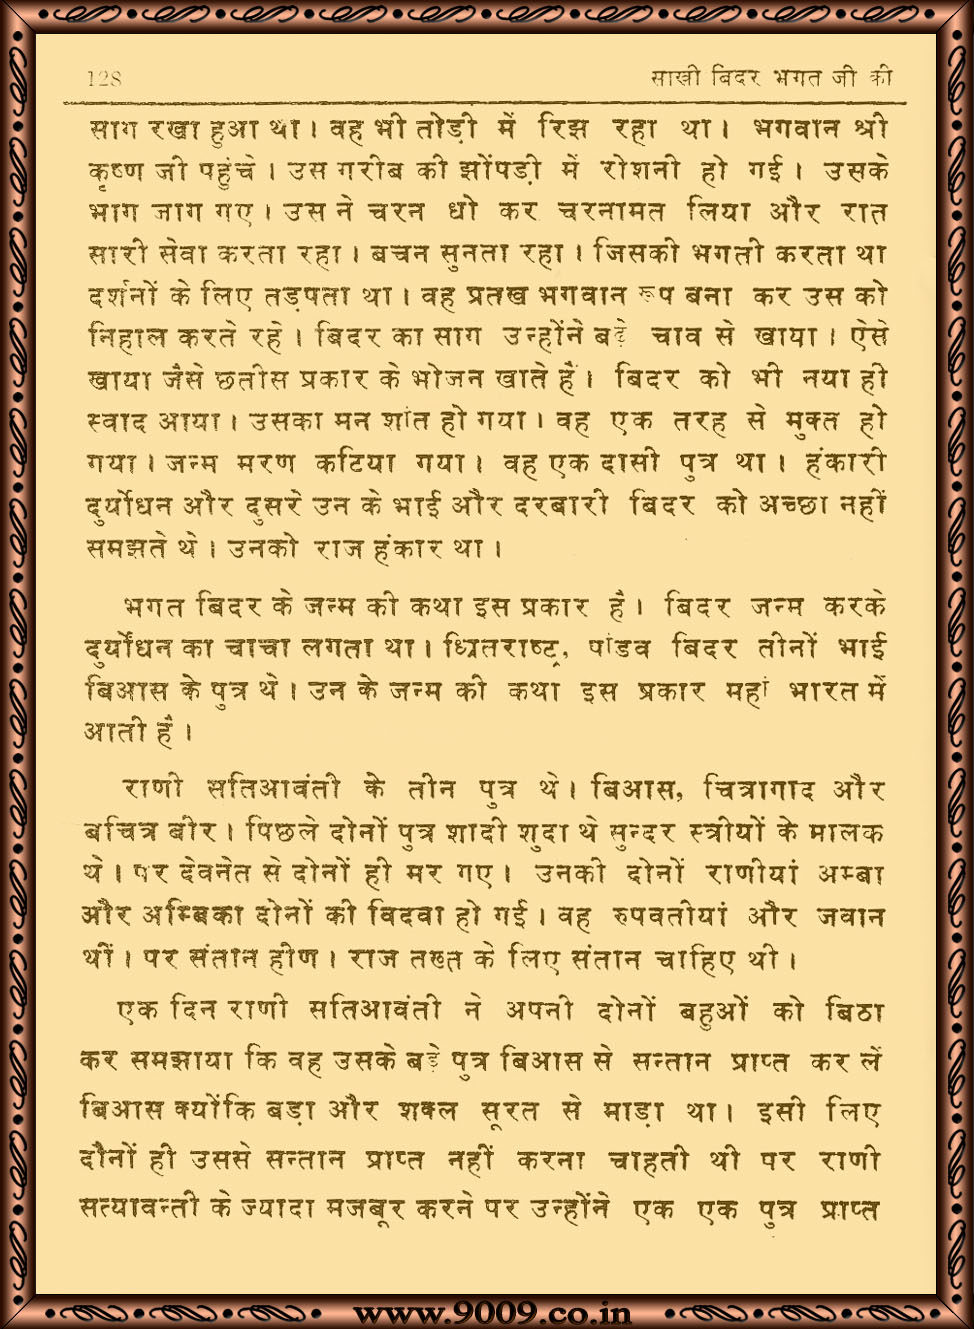 128 साखी बिदर भगत जी की
साग रखा हुआ था । वह भी तोड़ी में रिझ रहा था । भगवान श्री
कृष्ण जी पहुंचे । उस गरीब की झोंपड़ी में रोशनी हो गई । उसके
भाग जाग गए । उस ने चरन धो कर चरनामत लिया और रात
सारी सेवा करता रहा । बचन सुनता रहा । जिसकी भगती करता था
दर्शनों के लिए तड़पता था । वह प्रतख भगवान रूप बना कर उस को
निहाल करते रहे । बिदर का साग उन्होंने बड़े चाव से खाया । ऐसे
खाया जैसे छतीस प्रकार के भोजन खाते हैं । बिदर को भी नया ही
स्वाद आया । उसका मन शांत हो गया । वह एक तरह से मुक्त हो
गया । जन्म मरण कटिया गया । वह एक दासी पुत्र था । हंकारी
दुर्योधन और दुसरे उन के भाई और दरबारी बिदर को अच्छा नहीं
समझते थे । उनको राज हंकार था ।
भगत बिदर के जन्म की कथा इस प्रकार है । बिदर जन्म करके
दुर्योंधन का चाचा लगता था । ध्रितराष्ट्र, पांडव बिदर तीनों भाई
बिआस के पुत्र थे । उन के जन्म की कथा इस प्रकार महां भारत में
आती है ।
राणी सतिआवंती के तीन पुत्र थे । बिआस, चित्रागाद और
बचित्र बीर । पिछले दोनों पुत्र शादी शुदा थे सुन्दर स्त्रीयों के मालक
थे । पर देवनेत से दोनों ही मर गए । उनकी दोनों राणीयां अम्बा
और अम्बिका दोनों की विदवा हो गई । वह रुपवतीयां और जवान
थीं । पर संतान हीण । राज तख्त के लिए संतान चाहिए थी ।
एक दिन राणी सतिआवंती ने अपनी दोनों बहुओं को बिठा
कर समझाया कि वह उसके बड़े पुत्र बिआस से सन्तान प्राप्त कर लें
बिआस क्योंकि बड़ा और शक्ल सूरत से माड़ा था । इसी लिए
दौनों ही उससे सन्तान प्राप्त नहीं करना चाहती थी पर राणी
सत्यावन्ती के ज्यादा मजबूर करने पर उन्होंने एक एक पुत्र प्राप्त
www.9009.co.in